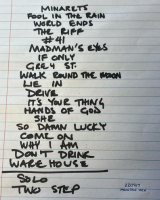 MINARETS
FOOL IN THE RAIN
WORLD ENDS
THE RIFF
#41
MADMAN'S EYES
IF ONLY
GREY ST.
WALK ROUND THE MOON
LIE IN
DRIVE
IT'S YOUR THING
HANDS OF GOD
SHE
SO DAMN LUCKY
COME ON
WHY I AM
DON'T DRINK
WAREHOUSE
SOLO
TWO STEP